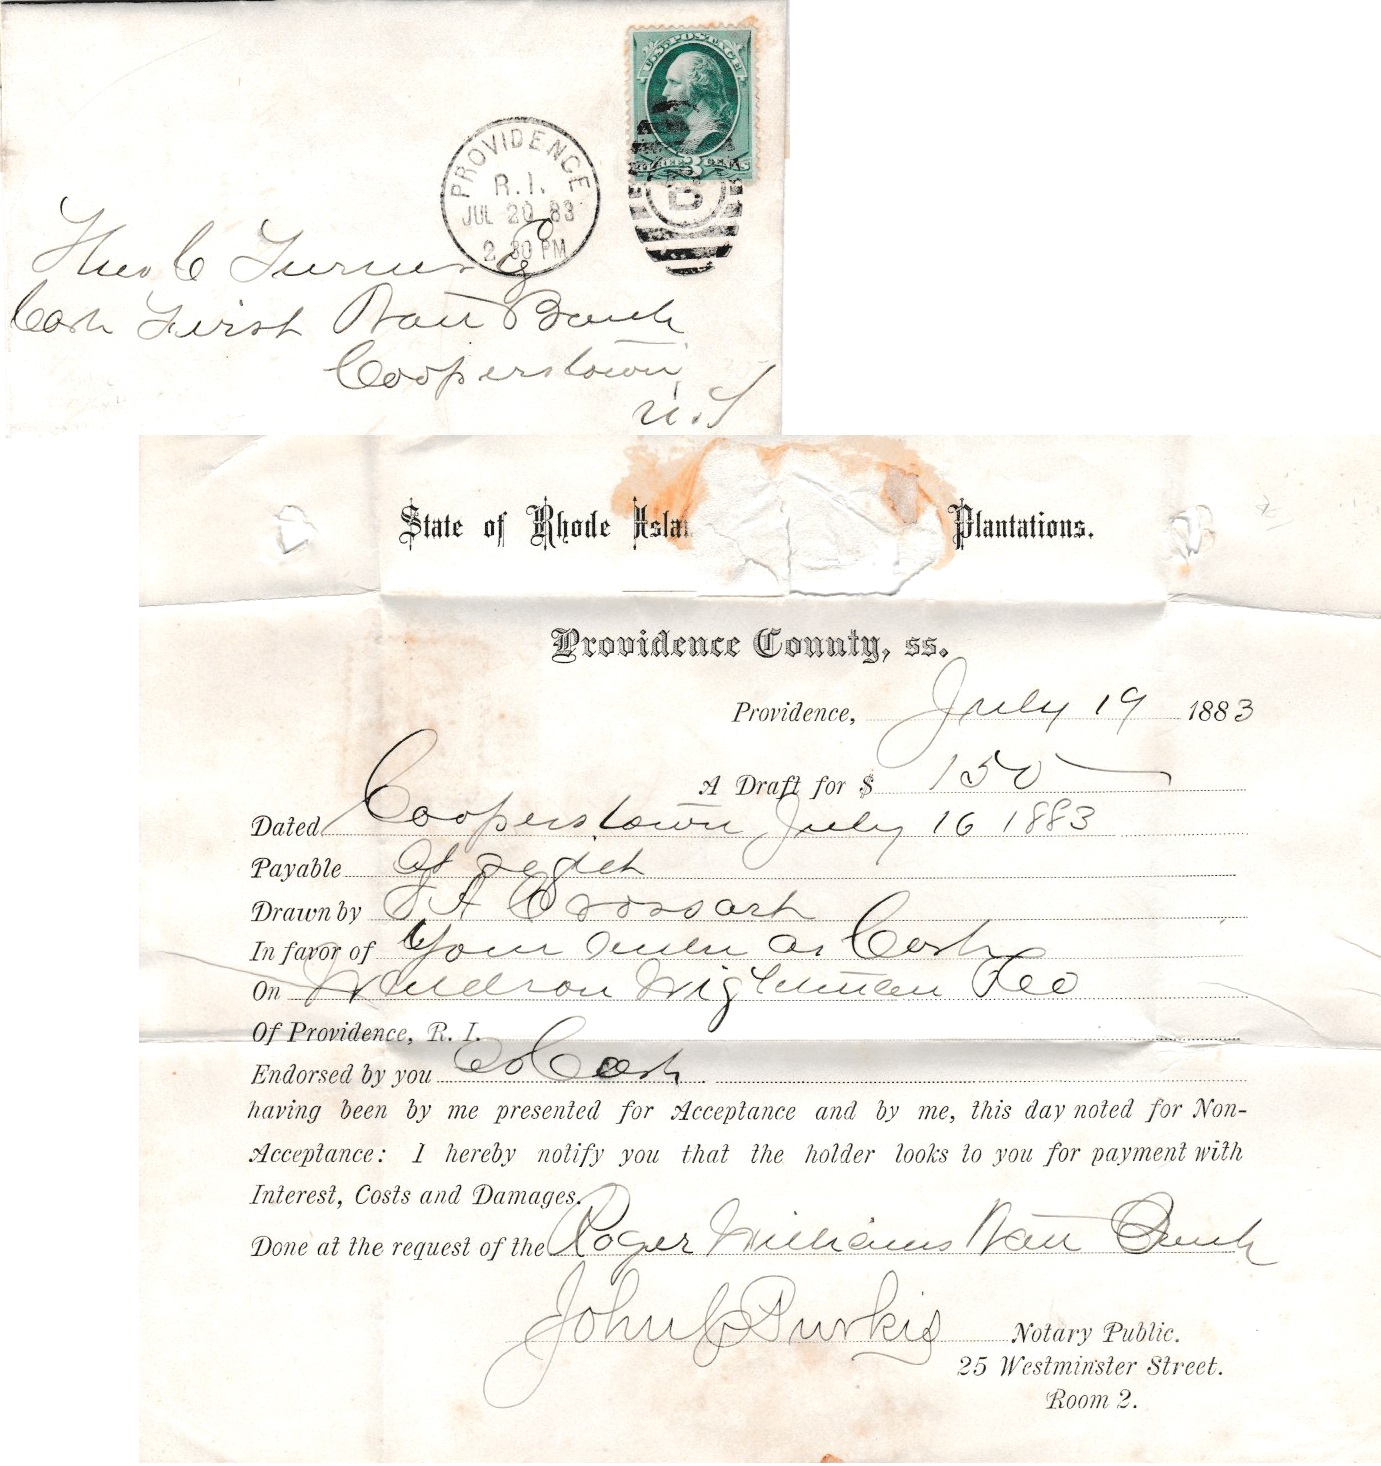 U.S. POSTAGE
THREE 3 CENTS
PROVIDENCE
R.I.
JUL 20 83
2 30 PM
Theo C Turner
Cash First Natl Bank
Cooperstown
N.Y
State of Rhode Islan Plantations.
Providence County, ss.
Providence, July 19 1883
A Draft for $ 150
Dated Cooperstown July 16 1883
Payable At sight
Drawn by
In favor of Your as Cash
On Wightman &Co
Of Providence, R. I.
Endorsed by you as Cash
having been by me presented for Acceptance and by me, this day noted for Non-
Acceptance: I hereby notify you that the holder looks to you for payment with
Interest, Costs and Damages.
Done at the request of the Roger Williams Natl Bank
John C Purkis Notary Public.
25 Westminster Street.
Room 2.